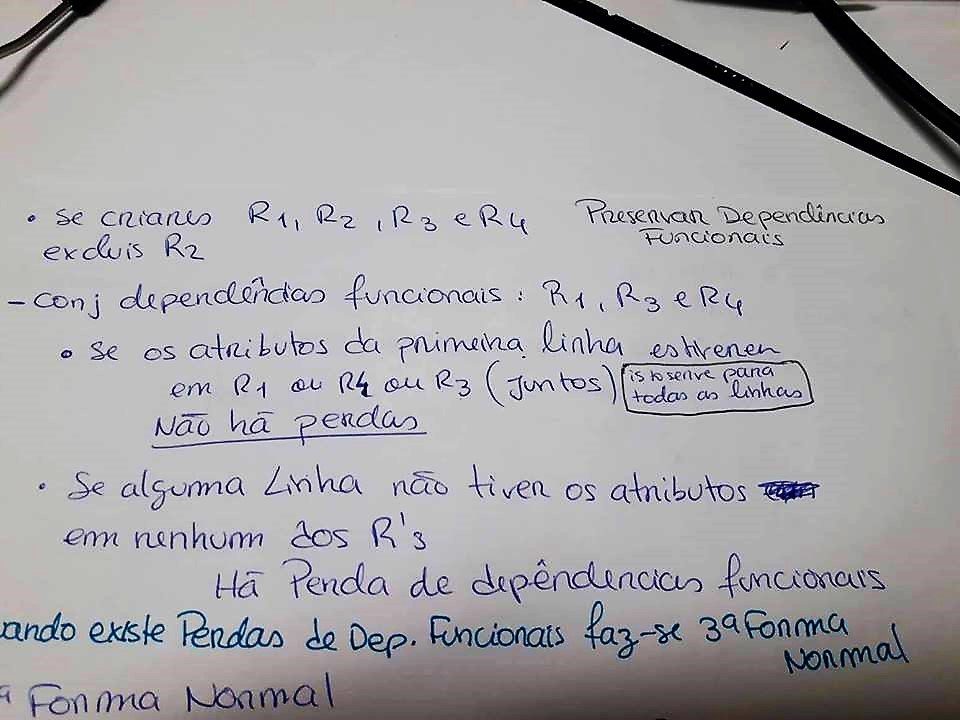 • Se criares R1, R2, R3 e R4
excluis R2
Preservar Dependências
Funcionais
- Conj dependências funcionais: R1, R3 e R4
• Se os atributos da primeira linha estiverem
em R1 ou R4 ou R3 (Juntos)
isto serve para
todas as linhas
Não há perdas
• Se alguma Linha não tiver os atributos
em nenhum dos R's
Há Perda de depêndencias funcionais
uando existe Perdas de Dep. Funcionais faz-se 3ª Forma
Normal
ª Forma Normal